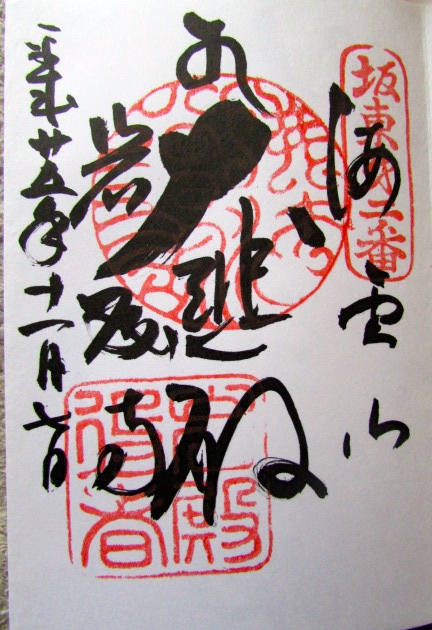 坂東第二番
海雲山
大悲殿
岩殿寺
平成廿五年十一月七日